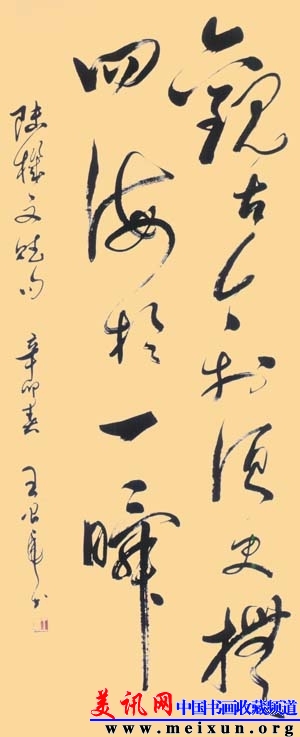 觀古今於須臾撫
四海於一瞬
陸機文賦句 辛卯春 王
书
美讯网 中国书画收藏频道
www.meixun.org